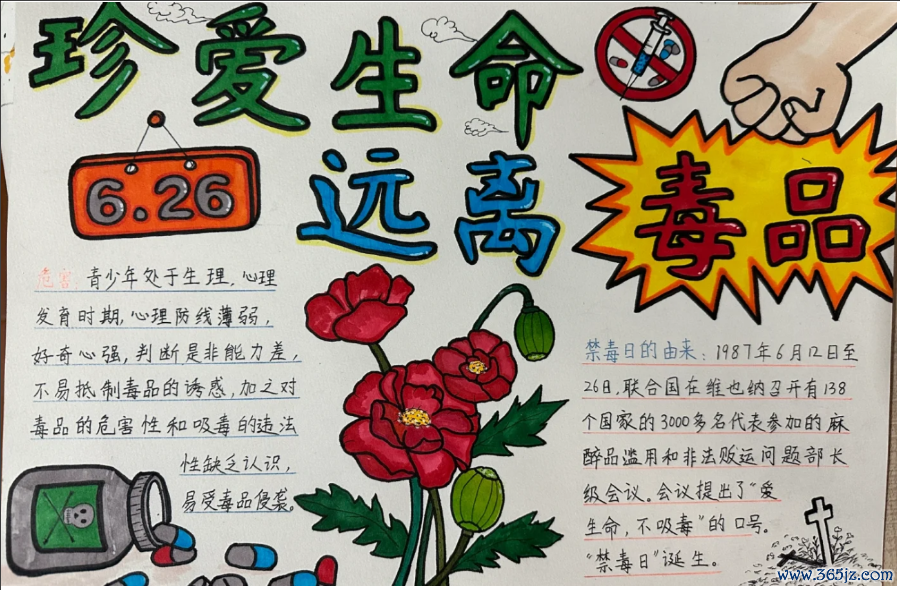 珍爱生命
远离
毒品
6.26
危害:青少年处于生理、心理
发育时期,心理防线薄弱,
好奇心强,判断是非能力差,
不易抵制毒品的诱惑,加之对
毒品的危害性和吸毒的违法
性缺乏认识,
易受毒品侵袭。
禁毒日的由来:1987年6月12日至
26日,联合国在维也纳召开有138
个国家的3000多名代表参加的麻
醉品滥用和非法贩运问题部长
级会议。会议提出了“爱
生命,不吸毒”的口号。
“禁毒日”诞生。
www.365jz.com